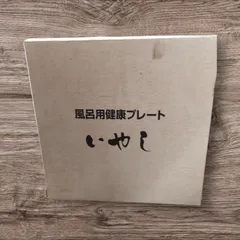 風呂用健康プレート
いやし